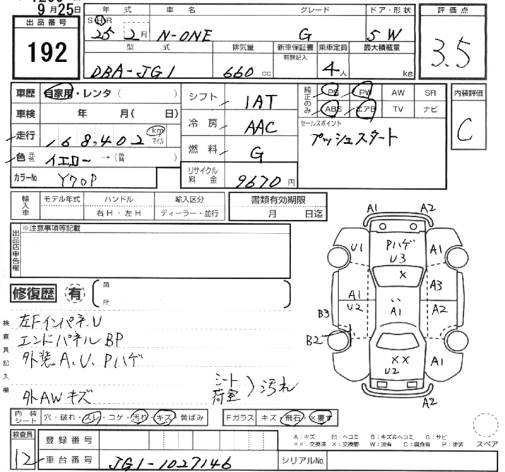 9月25日
出品番号
192
年 式
車 名
グレード
ドア・形状
S H R
25 年 2 月
N-ONE
G
5 W
型 式
排気量
新車保証書
有無記入
乗車定員
最大積載量
DBA-JG1
660 cc
4人
kg
評価点
3.5
車歴
自家用・レンタ( )
車検
年 月( 日)
走行
168,402
km
マイル
色
イエロー→(
カラーNo
Y70P
シフト
1AT
冷房
AAC
燃料
G
リサイクル
料金
9670円
純正のみ
PS
PW
AW
SR
ABS
エアB
TV
ナビ
セールスポイント
プッシュスタート
内装評価
C
輸入車
モデル年式
ハンドル
輸入区分
右H・左H
ディーラー・並行
書類有効期限
月 日迄
出品店申告欄
※注意事項等記載
修復歴
有
箇所
検査員記入欄
左FインパネU
エンドパネルBP
外装A、U、Pハゲ
外AWキズ
シート
荷室
汚れ
A1
A2
U1
Pハゲ
U3
A1
×
A1
U2
A1
A3
B3
A2
B2
××
U2
A1
A2
内装
シート
穴・破れ・スレ・コゲ・汚れ・キズ・黄ばみ
Fガラス
キズ・飛石・×要す
A:キズ
U:ヘコミ
B:キズ&ヘコミ
S:サビ
××:交換済
×:交換要
W:波有
C:腐食有
P:塗装
スペア
検査員
12
登録番号
車台番号
JG1-1027146
シリアルNo.